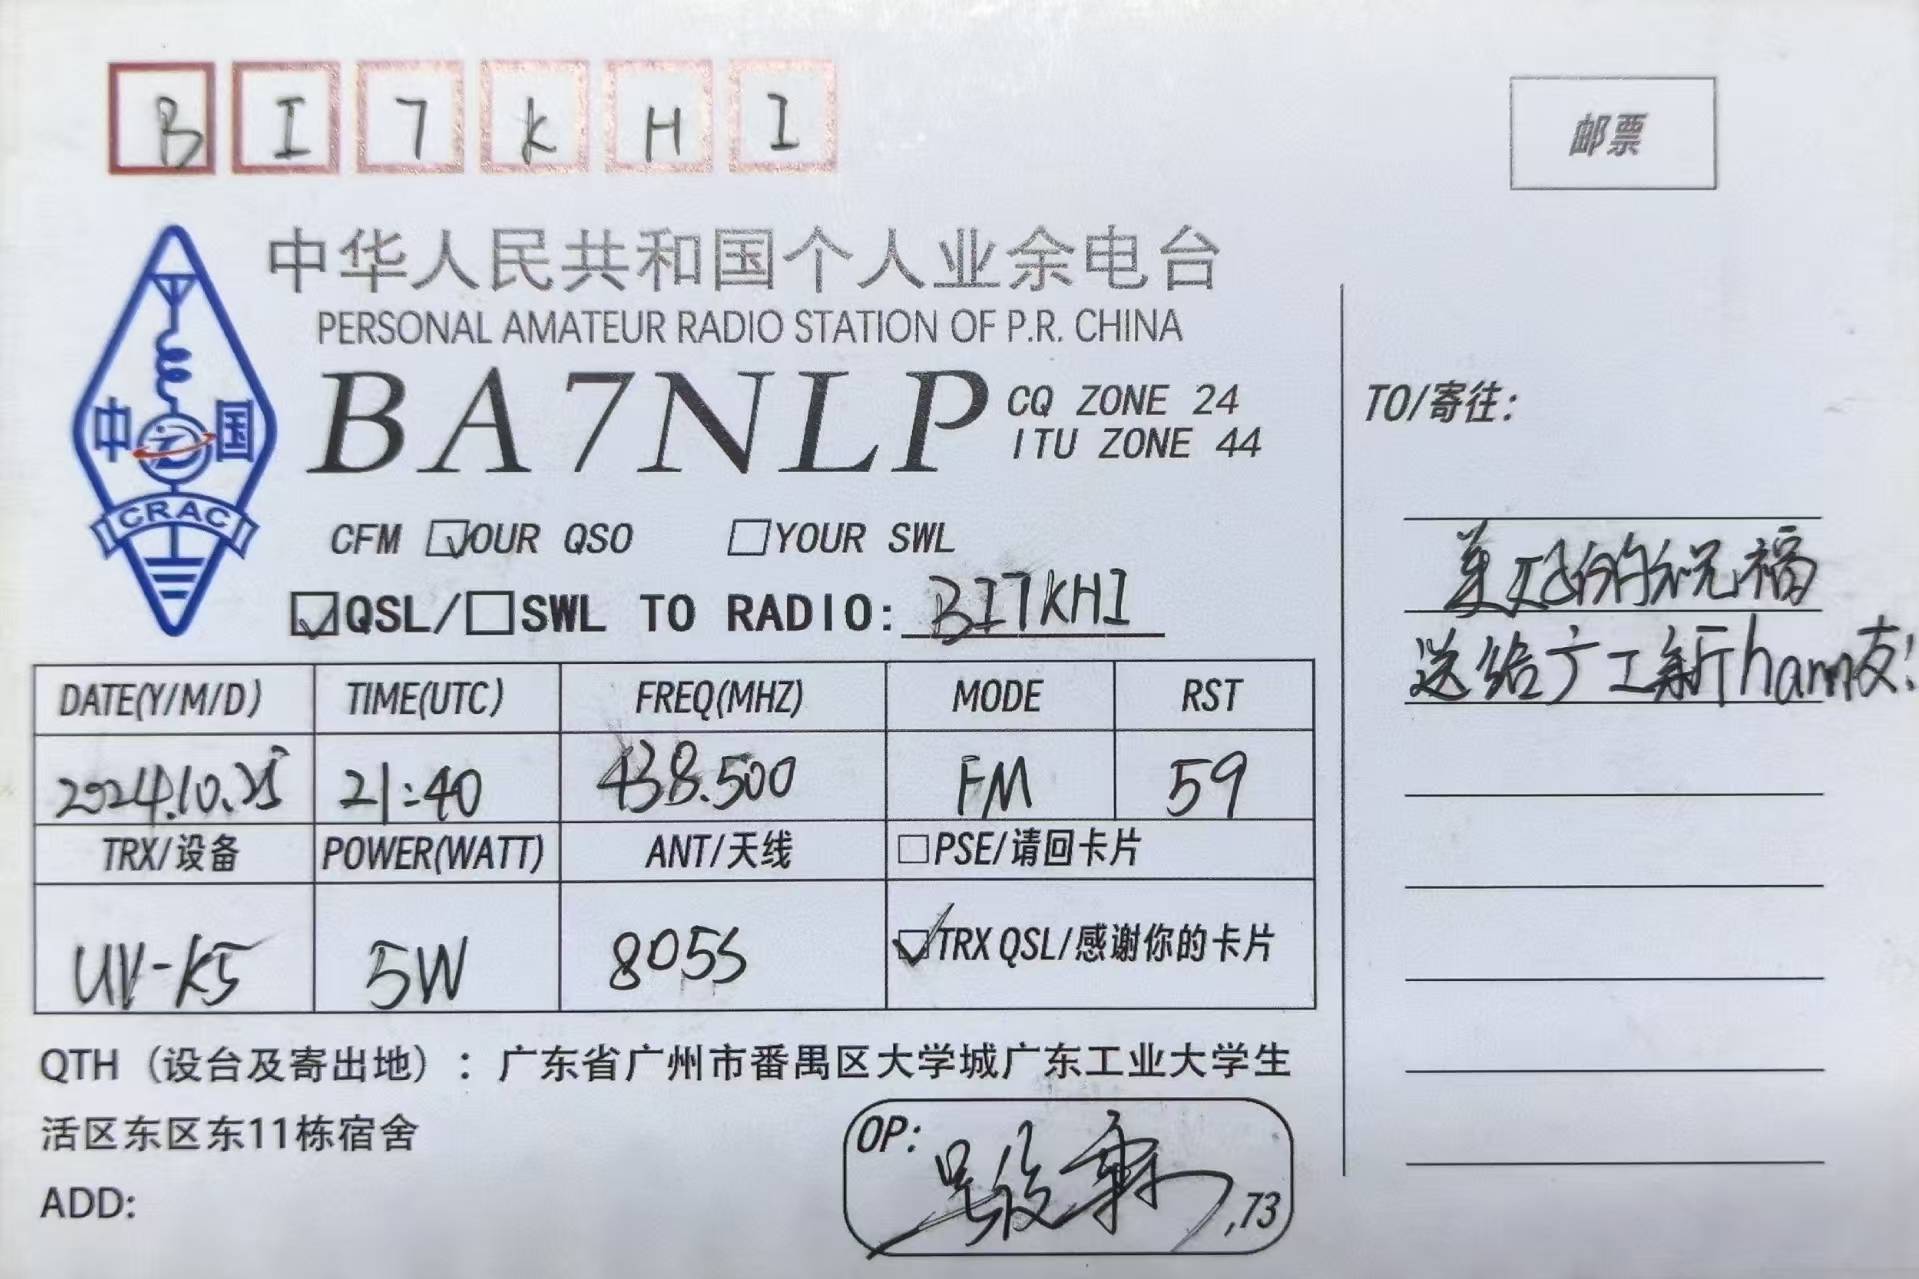 BI7KHI
邮票
中华人民共和国个人业余电台
PERSONAL AMATEUR RADIO STATION OF P.R. CHINA
中国
CRAC
BA7NLP
CQ ZONE 24
ITU ZONE 44
CFM ☑OUR QSO ☐YOUR SWL
☑QSL/☐SWL TO RADIO: BI7KHI
DATE(Y/M/D) TIME(UTC) FREQ(MHZ) MODE RST
2024.10.25 21:40 438.500 FM 59
TRX/设备 POWER(WATT) ANT/天线 ☐PSE/请回卡片
UV-K5 5W 805S ☑TRX QSL/感谢你的卡片
QTH（设台及寄出地）：广东省广州市番禺区大学城广东工业大学生
活区东区东11栋宿舍
ADD:
OP: ,73
TO/寄往:
美好的祝福
送给广工新ham友!